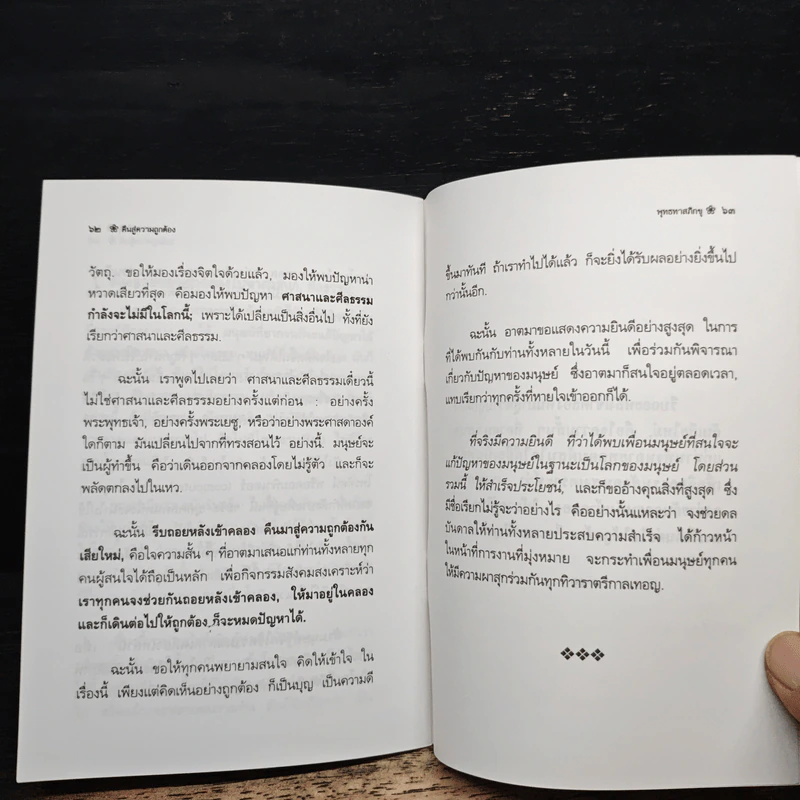 ๖๒ คืนสู่ความถูกต้อง
วัตถุ. ขอให้มองเรื่องจิตใจด้วยแล้ว, มองให้พบปัญหาน่า
หวาดเสียวที่สุด คือมองให้พบปัญหา ศาสนาและศีลธรรม
กำลังจะไม่มีในโลกนี้; เพราะได้เปลี่ยนเป็นสิ่งอื่นไป ทั้งที่ยัง
เรียกว่าศาสนาและศีลธรรม.
ฉะนั้น เราพูดไปเลยว่า ศาสนาและศีลธรรมเดี๋ยวนี้
ไม่ใช่ศาสนาและศีลธรรมอย่างครั้งแต่ก่อน : อย่างครั้ง
พระพุทธเจ้า, อย่างครั้งพระเยซู, หรือว่าอย่างพระศาสดาองค์
ใดก็ตาม มันเปลี่ยนไปจากที่ทรงสอนไว้ อย่างนี้. มนุษย์จะ
เป็นผู้ทำขึ้น คือว่าเดินออกจากคลองโดยไม่รู้ตัว และก็จะ
พลัดตกลงไปในเหว.
ฉะนั้น รีบถอยหลังเข้าคลอง คืนมาสู่ความถูกต้องกัน
เสียใหม่, คือใจความสั้น ๆ ที่อาตมาเสนอแก่ท่านทั้งหลายทุก
คนผู้สนใจได้ถือเป็นหลัก เพื่อกิจกรรมสังคมสงเคราะห์ว่า
เราทุกคนจงช่วยกันถอยหลังเข้าคลอง, ให้มาอยู่ในคลอง
และก็เดินต่อไปให้ถูกต้อง ก็จะหมดปัญหาได้.
ฉะนั้น ขอให้ทุกคนพยายามสนใจ คิดให้เข้าใจ ใน
เรื่องนี้ เพียงแต่คิดเห็นอย่างถูกต้อง ก็เป็นบุญ เป็นความดี
พุทธทาสภิกขุ ๖๓
ขึ้นมาทันที ถ้าเราทำไปได้แล้ว ก็จะยิ่งได้รับผลอย่างยิ่งขึ้นไป
กว่านั้นอีก.
ฉะนั้น อาตมาขอแสดงความยินดีอย่างสูงสุด ในการ
ที่ได้พบกันกับท่านทั้งหลายในวันนี้ เพื่อร่วมกันพิจารณา
เกี่ยวกับปัญหาของมนุษย์ ซึ่งอาตมาก็สนใจอยู่ตลอดเวลา,
แทบเรียกว่าทุกครั้งที่หายใจเข้าออกก็ได้.
ที่จริงมีความยินดี ที่ว่าได้พบเพื่อนมนุษย์ที่สนใจจะ
แก้ปัญหาของมนุษย์ในฐานะเป็นโลกของมนุษย์ โดยส่วน
รวมนี้ ให้สำเร็จประโยชน์, และก็ขออ้างคุณสิ่งที่สูงสุด ซึ่ง
มีชื่อเรียกไม่รู้จะว่าอย่างไร คืออย่างนั้นแหละว่า จงช่วยดล
บันดาลให้ท่านทั้งหลายประสบความสำเร็จ ได้ก้าวหน้า
ในหน้าที่การงานที่มุ่งหมาย จะกระทำเพื่อนมนุษย์ทุกคน
ให้มีความผาสุกร่วมกันทุกทิวาราตรีกาลเทอญ.